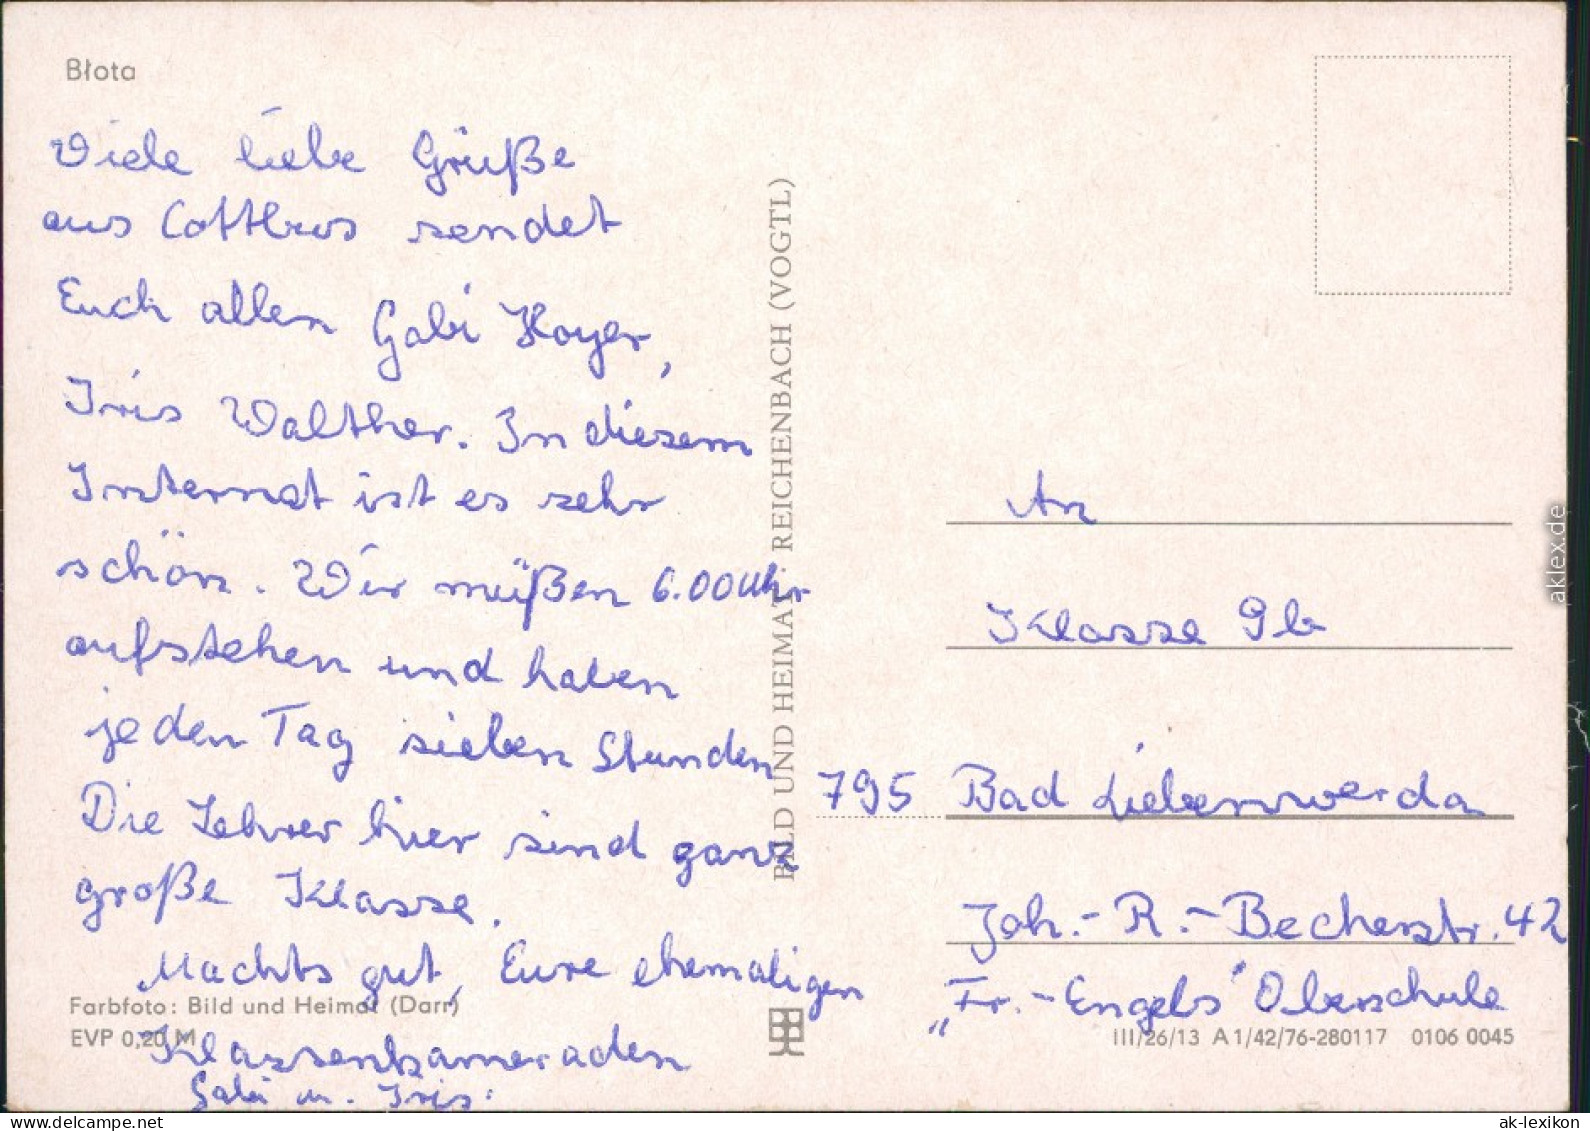 Błota
Viele liebe Grüße
aus Cottbus sendet
Euch allen Gabi Hoyer,
Iris Walther. In diesem
Internat ist es sehr
schön. Wir müßen 6.00 Uhr
aufstehen und haben
jeden Tag sieben Stunden
Die Lehrer hier sind ganz
große Klasse.
Machts gut, Eure ehemaligen
Klassenkameraden
Gabi u. Iris
Farbfoto: Bild und Heimat (Darr)
EVP 0,20 M
BILD UND HEIMAT REICHENBACH (VOGTL)
An
Klasse 9b
795 Bad Liebenwerda
Joh.-R.-Becherstr. 42
„Fr.-Engels" Oberschule
III/26/13 A 1/42/76-280117 0106 0045
aklex.de
ak-lexikon